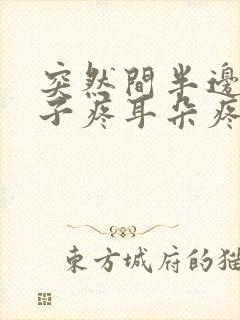 突然間半邊
子疼耳朵疼
東方城府的猫